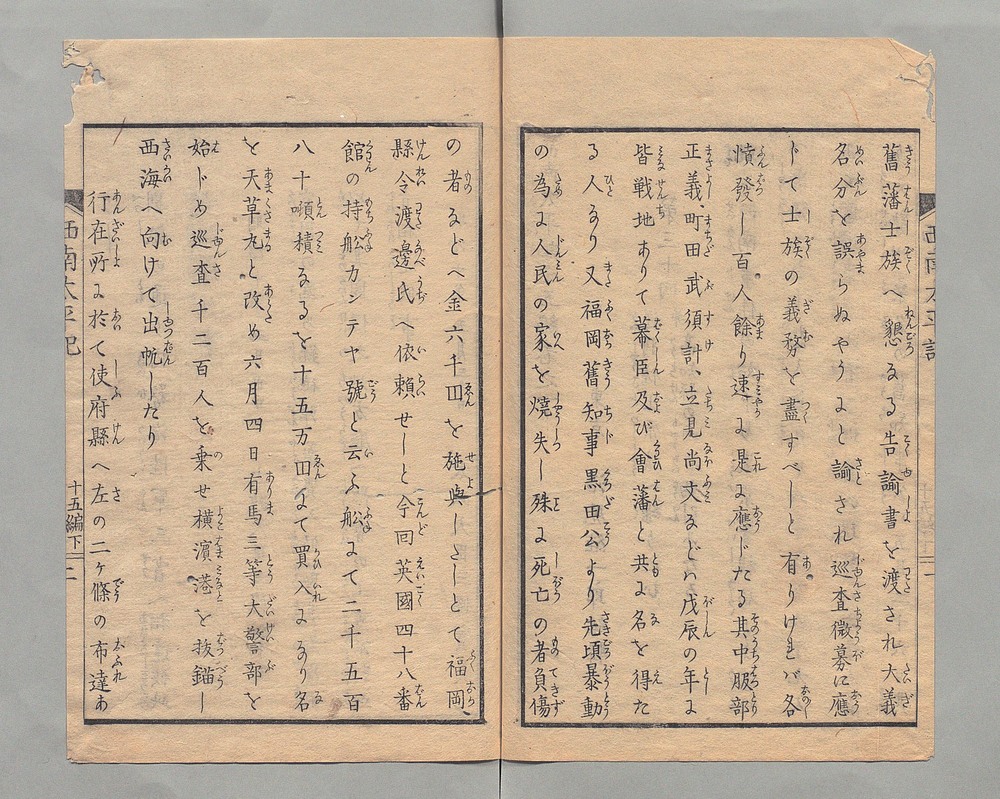 舊藩士族へ懇なる告諭書を渡され大義
名分を誤らぬやうよと諭され巡査徴募に應
じて士族の義務を盡すべしと有りければ各
憤發し百人餘り速に是に應じたる其中服部
正義、町田武須計、立見尚文などハ戊辰の年に
皆戦地ありて幕臣及び會藩と共に名を得た
る人なり又福岡舊知事黒田公より先頃暴動
の為に人民の家を燒失し殊に死亡の者負傷
の者などへ金六千圓を施與しさしとて福岡
縣令渡邊氏へ依頼せしと今回英國四十八番
館の持船カンテヤ號と云ふ船にて二千五百
八十噸積なるを十五万圓にて買入になり名
を天草丸と改め六月四日有馬三等大警部を
始じめ巡査千二百人を乗せ横濱港を抜錨し
西海へ向けて出帆したり
行在所に於て使府縣へ左の二ヶ條の布達あ
西南太平記
十五編下
二